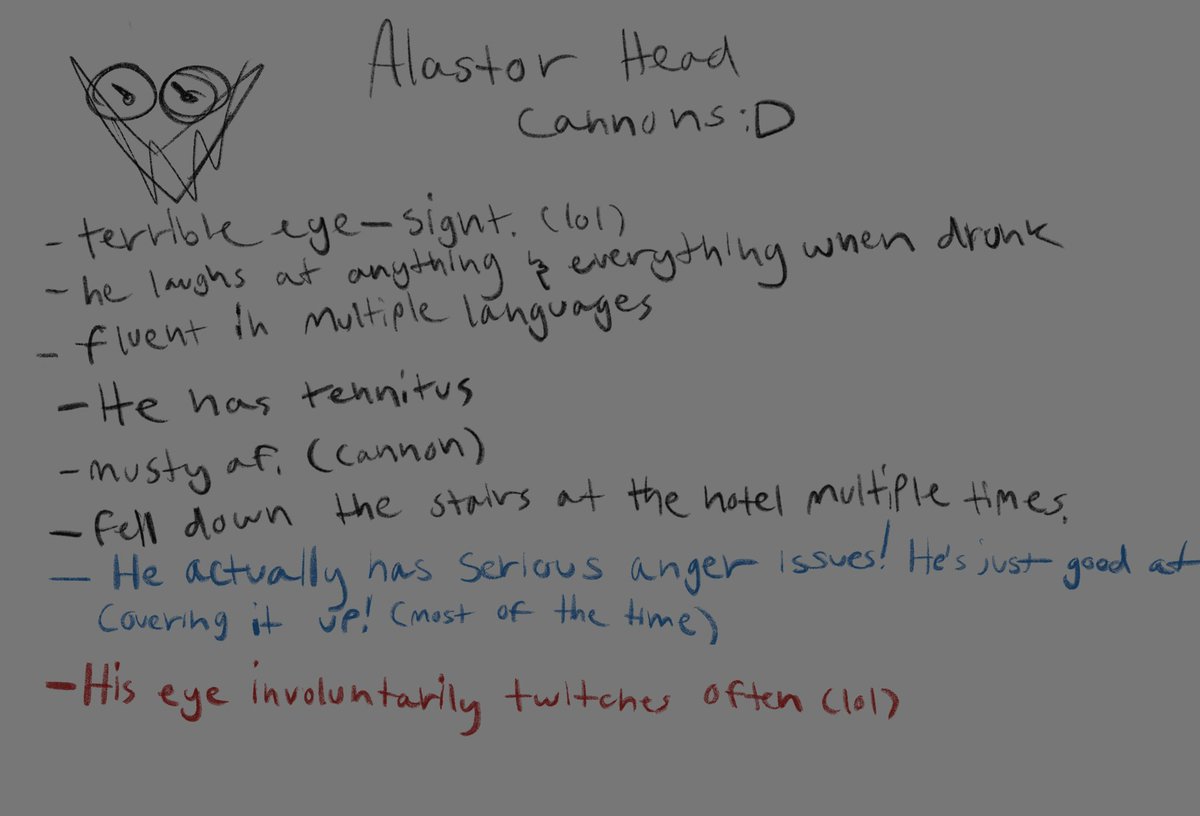 Alastor Head
Cannons :D
- terrible eye-signt. (lol)
- he laughs at anything & everything when drunk
- fluent in multiple languages
- He has tennitus
- musty af. (cannon)
- Fell down the stairs at the hotel multiple times.
- He actually has serious anger issues! He's just good at
covering it up! (most of the time)
- His eye involuntarily twitches often (lol)